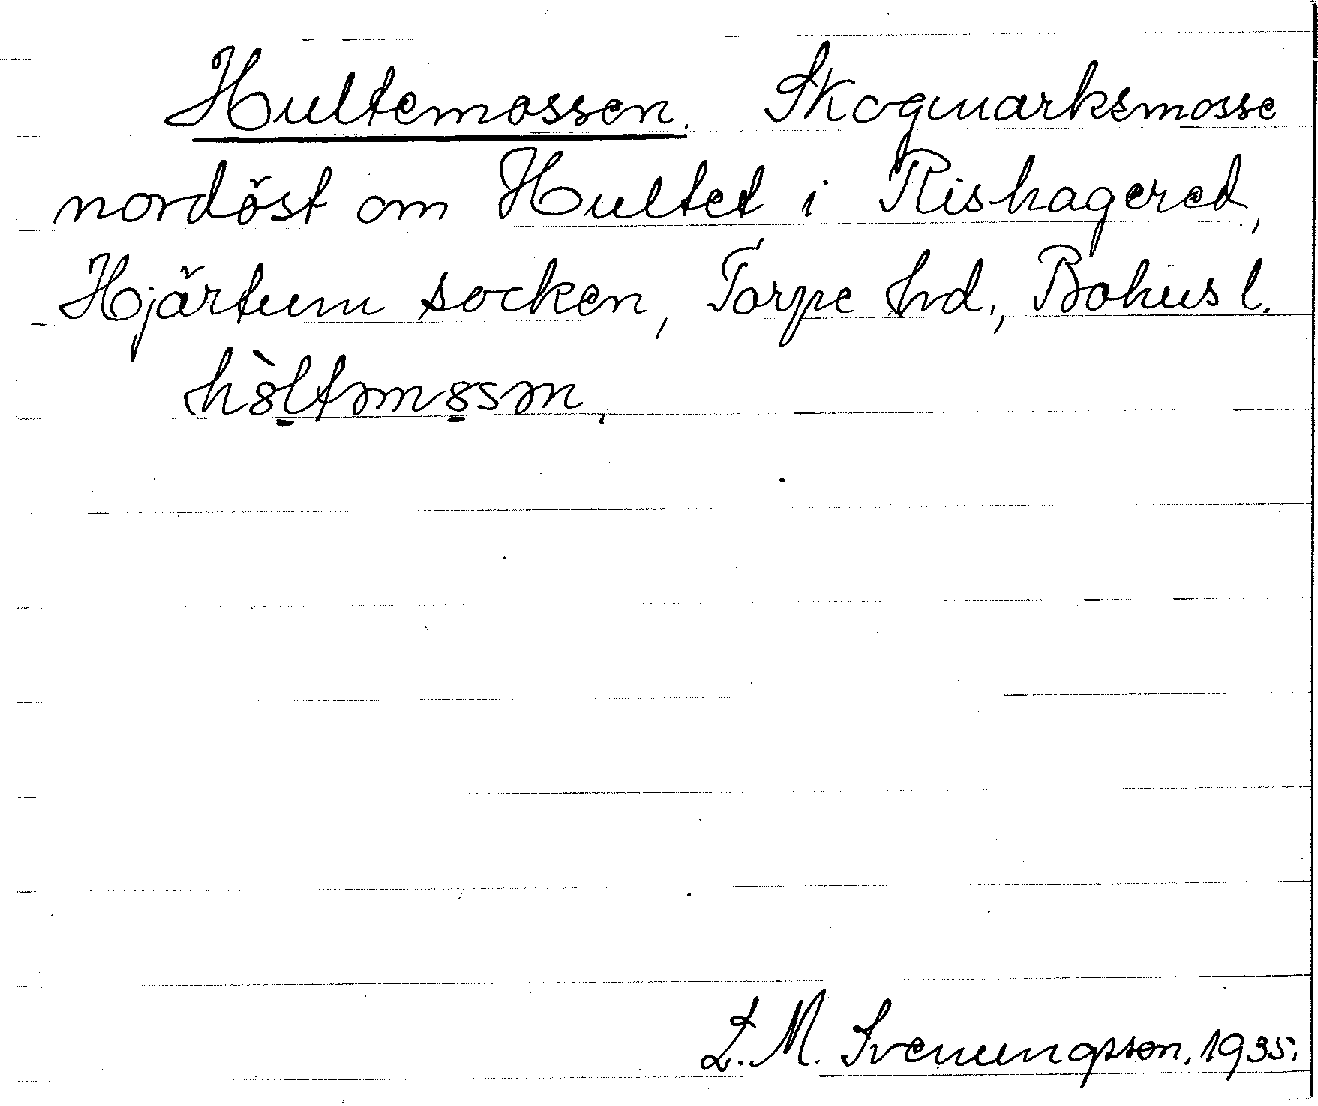 Hultemossen. Skogmarksmosse
nordöst om Hultet i Rishagered,
Hjärtum socken, Torpe hd., Bohusl.
L. M. Svenungsson. 1935.